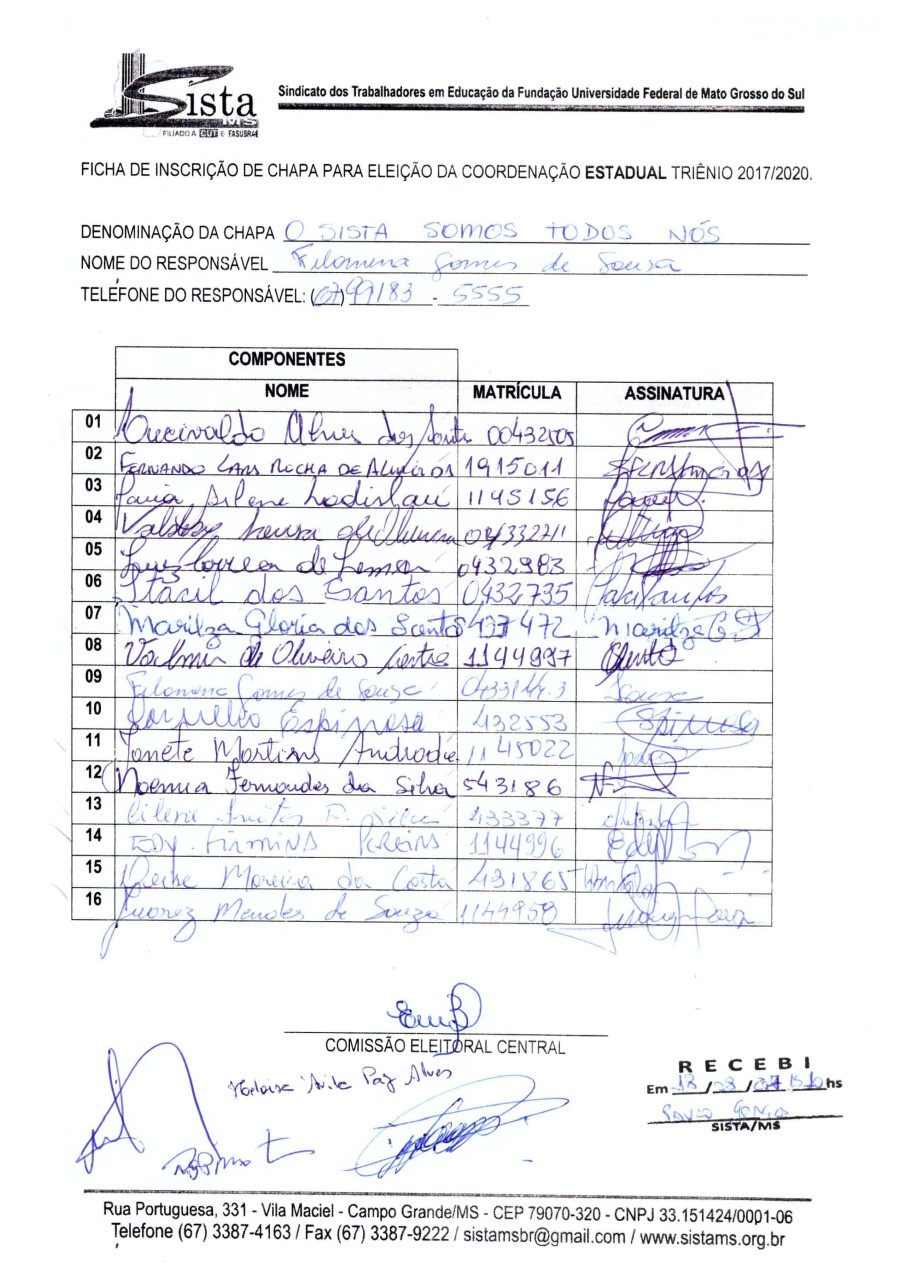 Sista
MS
FILIADO A CUT E FASUBRA
Sindicato dos Trabalhadores em Educação da Fundação Universidade Federal de Mato Grosso do Sul
FICHA DE INSCRIÇÃO DE CHAPA PARA ELEIÇÃO DA COORDENAÇÃO ESTADUAL TRIÊNIO 2017/2020.
DENOMINAÇÃO DA CHAPA O SISTA SOMOS TODOS NÓS
NOME DO RESPONSÁVEL Filomena Gomes de Sousa
TELEFONE DO RESPONSÁVEL: (67) 99183 - 5555
COMPONENTES
NOME MATRÍCULA ASSINATURA
01 Lucivaldo Alves dos Santos 00432505
02 FERNANDO ROCHA DE 1915011
03 Silene Ladislau 1145156
04 Souza
05 Luis Correa de 0432983
06 Itacil dos Santos 0432735
07 Marilza Gloria dos Santos 437472 Marilza G.
08 Valmir de Oliveira 1144997
09 Filomena Gomes de Sousa Sousa
10 Espinosa 432553 Espinosa
11 Ianete Martins Andrade 1145022
12 Noemia Fernandes da Silva 543186
13 433377
14 EDY FIRMINO PEREIRA 1144996
15 Moreira da Costa 431865
16 Juarez Mendes de Souza 1144958
COMISSÃO ELEITORAL CENTRAL
Avila Paz Alves
RECEBI
Em 18 / 08 / hs
SISTA/MS
Rua Portuguesa, 331 - Vila Maciel - Campo Grande/MS - CEP 79070-320 - CNPJ 33.151424/0001-06
Telefone (67) 3387-4163 / Fax (67) 3387-9222 / sistamsbr@gmail.com / www.sistams.org.br